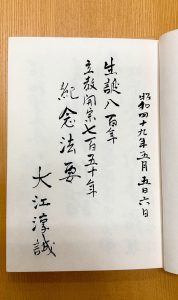 昭和四十九年五月五日六日
生誕八百年
立教開宗七百五十年
紀念法要
大江淳誠